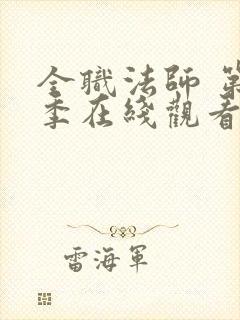 全職法師 第
季在綫觀看
雷海軍